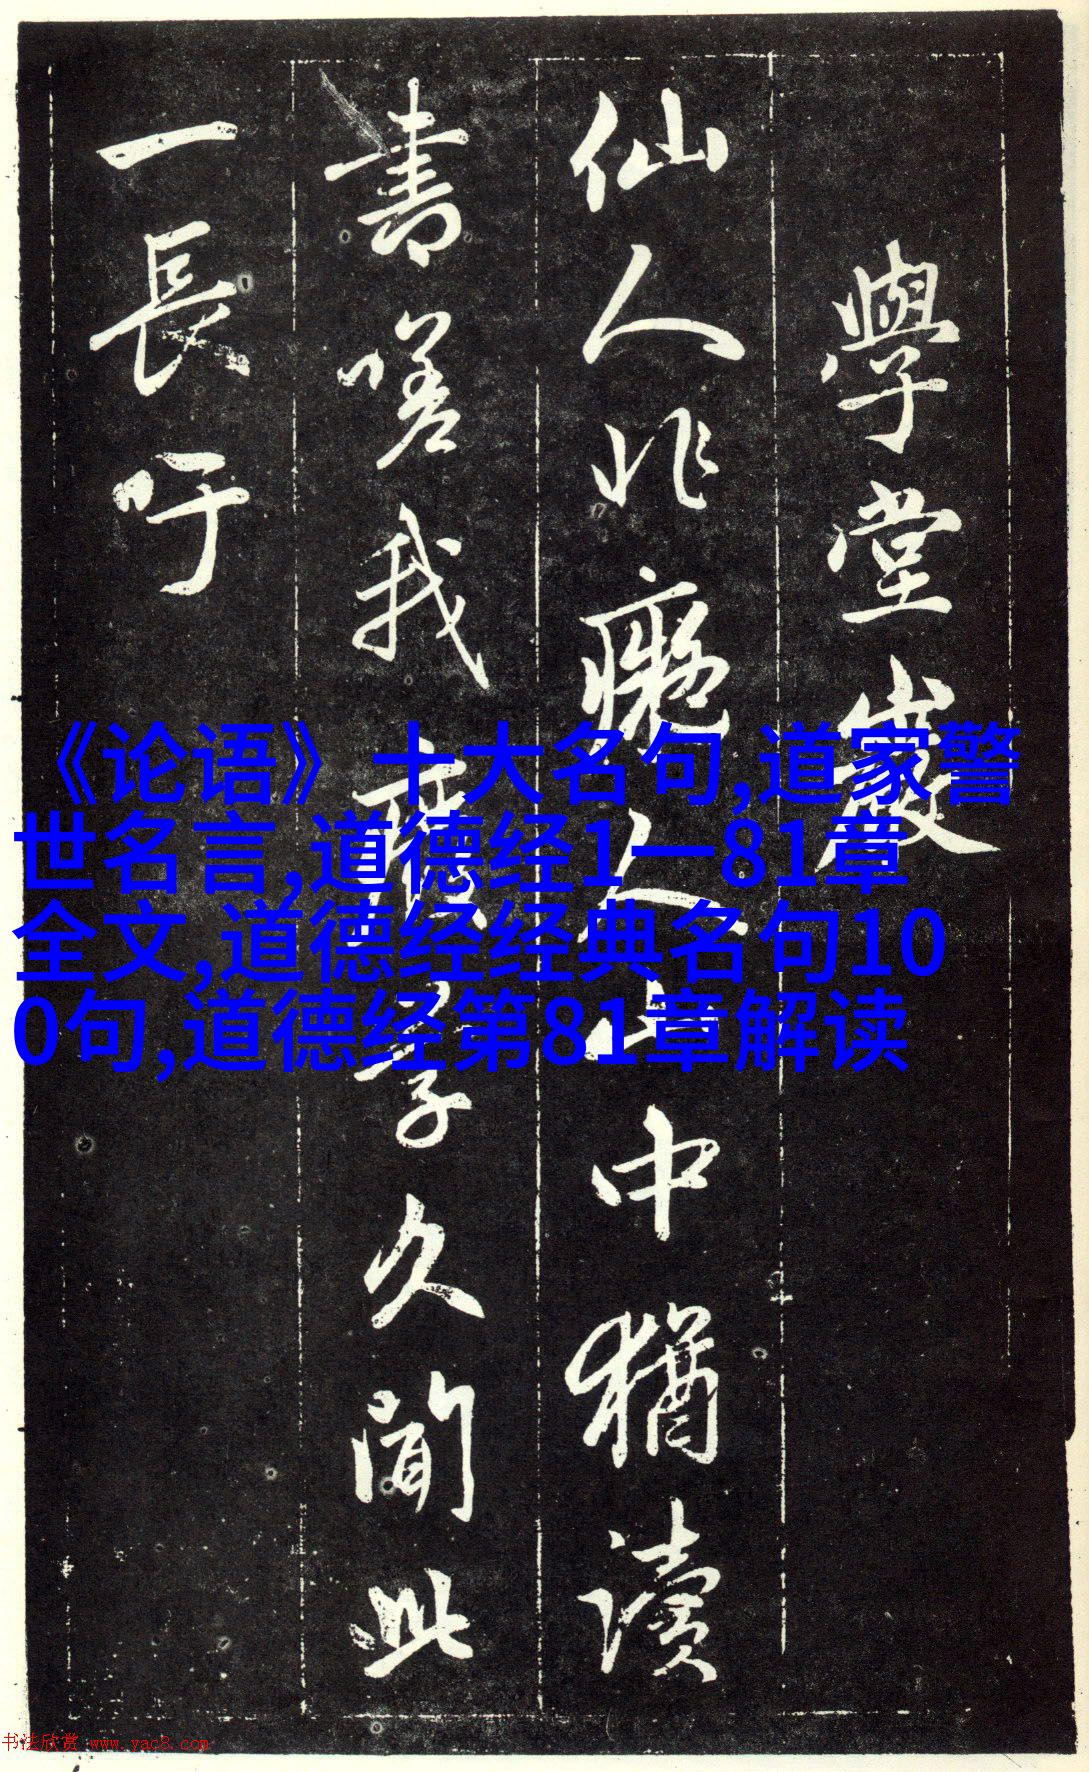 學堂巖
仙人非癡人山中猶讀
書嗟我廢學久聞此
一長吁
《论语》十大名句,道家警
世名言,道德经1一81章
全文,道德经经典名句10
0句,道德经第81章解读
书法欣赏 www.yac8.com